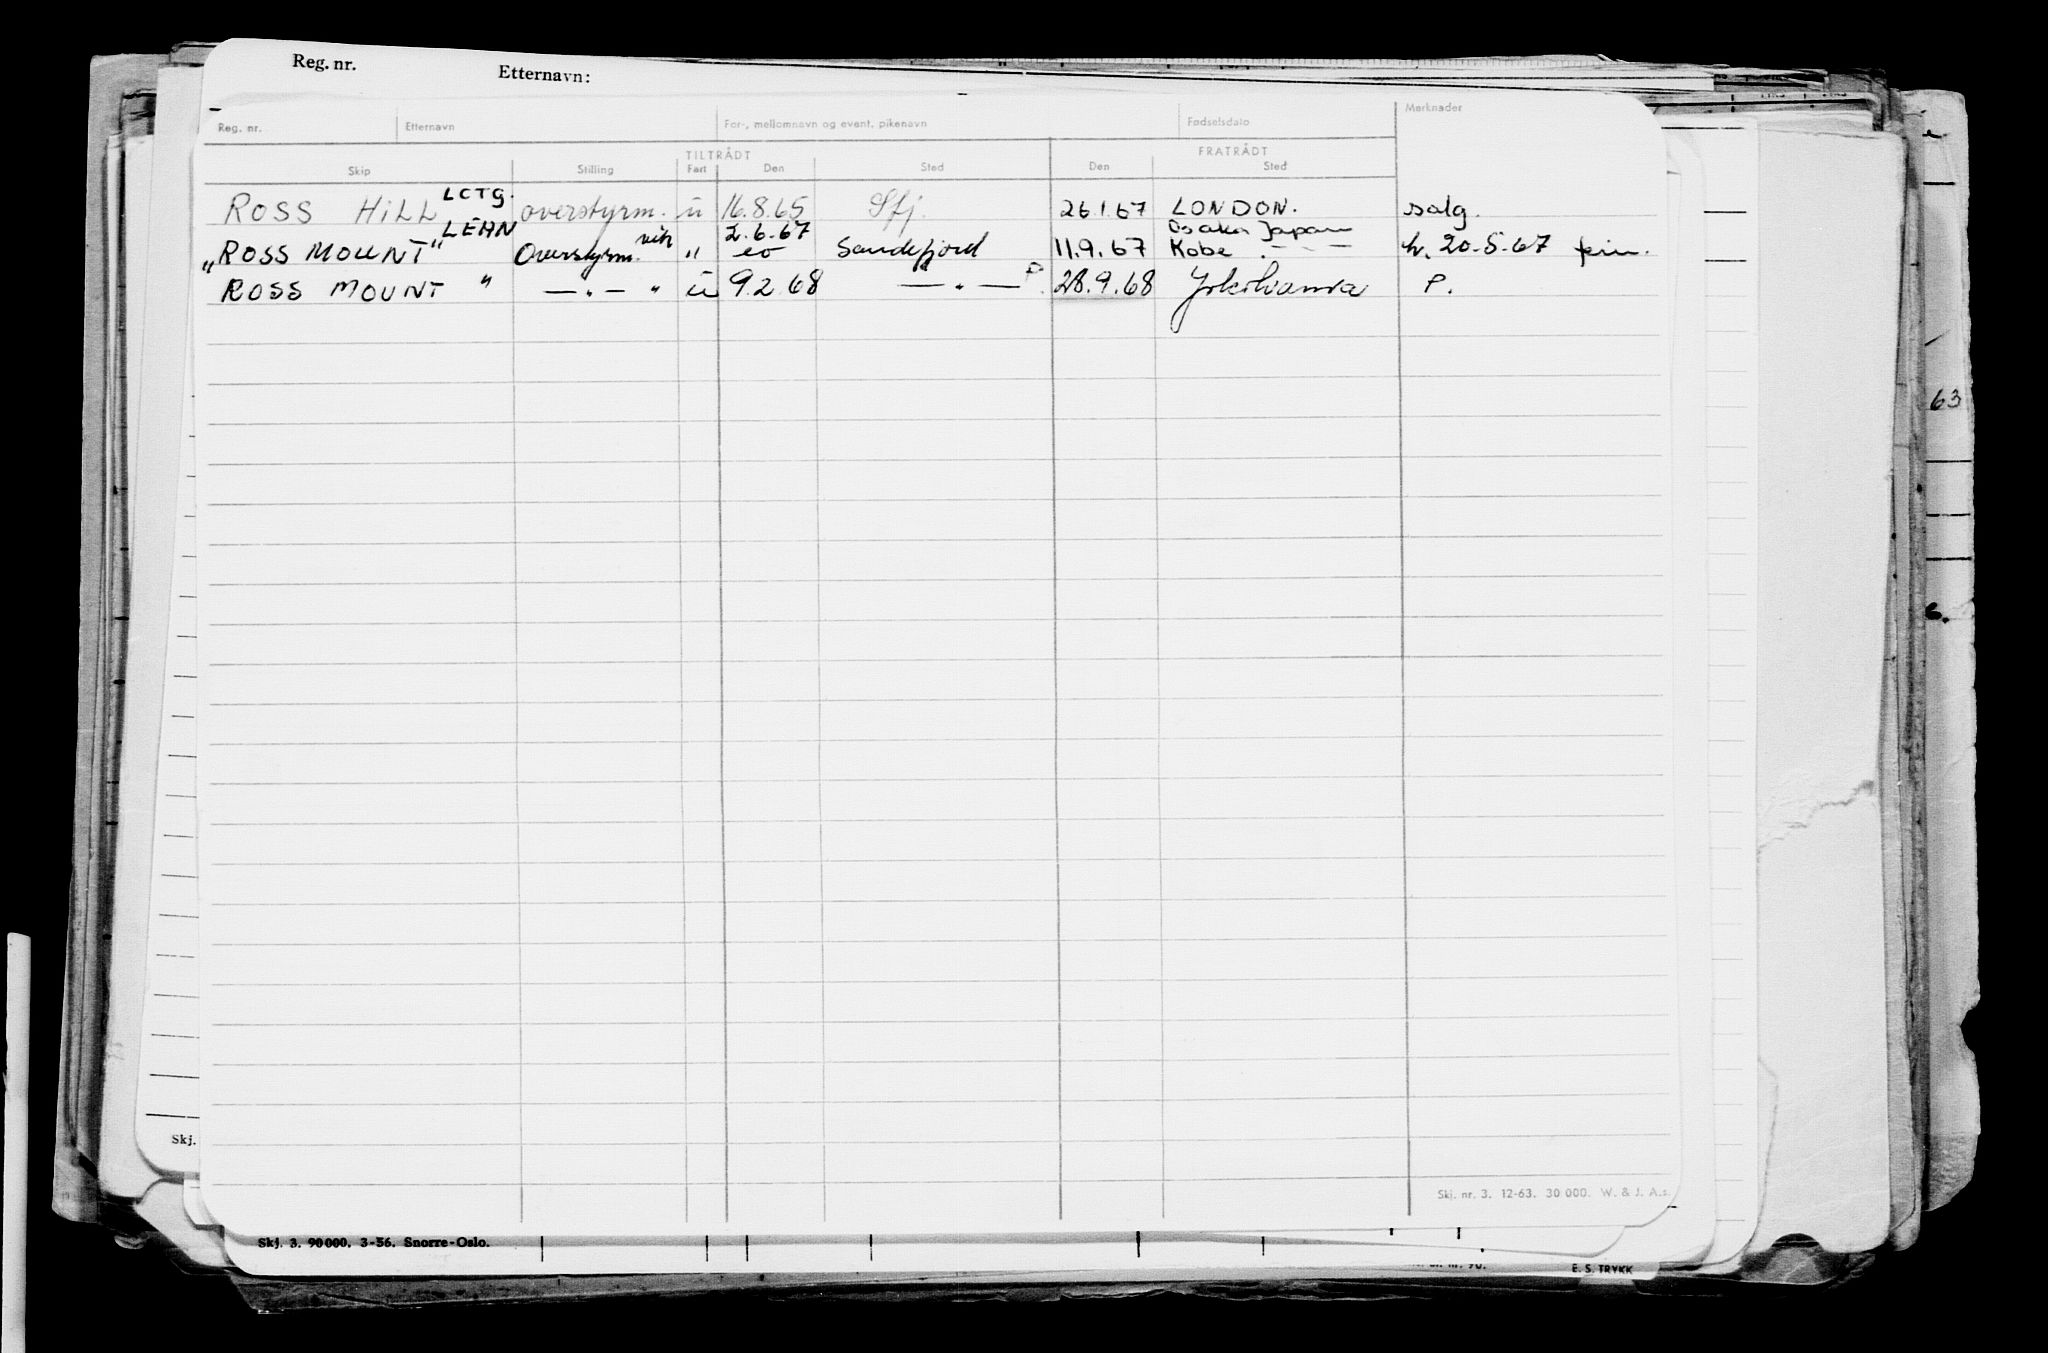 Reg. nr. Etternavn:
Reg. nr. Etternavn For-, mellomnavn og event. pikenavn Fødselsdato Merknader
TILTRÅDT FRATRÅDT
Skip Stilling Fart Den Sted Den Sted
ROSS HILL LCTG. overstyrm. u 16.8.65 Sfj. 26.1.67 LONDON. salg.
LEHN 2.6.67 Osaka Japan
"ROSS MOUNT" Overstyrm. vik " Sandefjord 11.9.67 Kobe . - - - h. 20-5-67 ferie.
ROSS MOUNT " — " — " u 9.2.68 — " — P. 28.9.68 Yokohama P.
63
6.
Skj. nr. 3. 12-63. 30 000. W. & J. A.s.
Skj.
Skj. 3. 90000. 3-56. Snorre-Oslo.
E. S. TRYKK